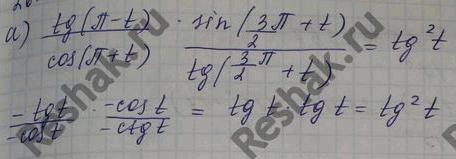 а) tg(π-t)/cos(π+t) · sin(3/2 π + t)/tg(3/2 π + t) = tg²t
-tgt/-cost · -cost/-ctgt = tgt · tgt = tg²t
Reshak.ru
Reshak.ru